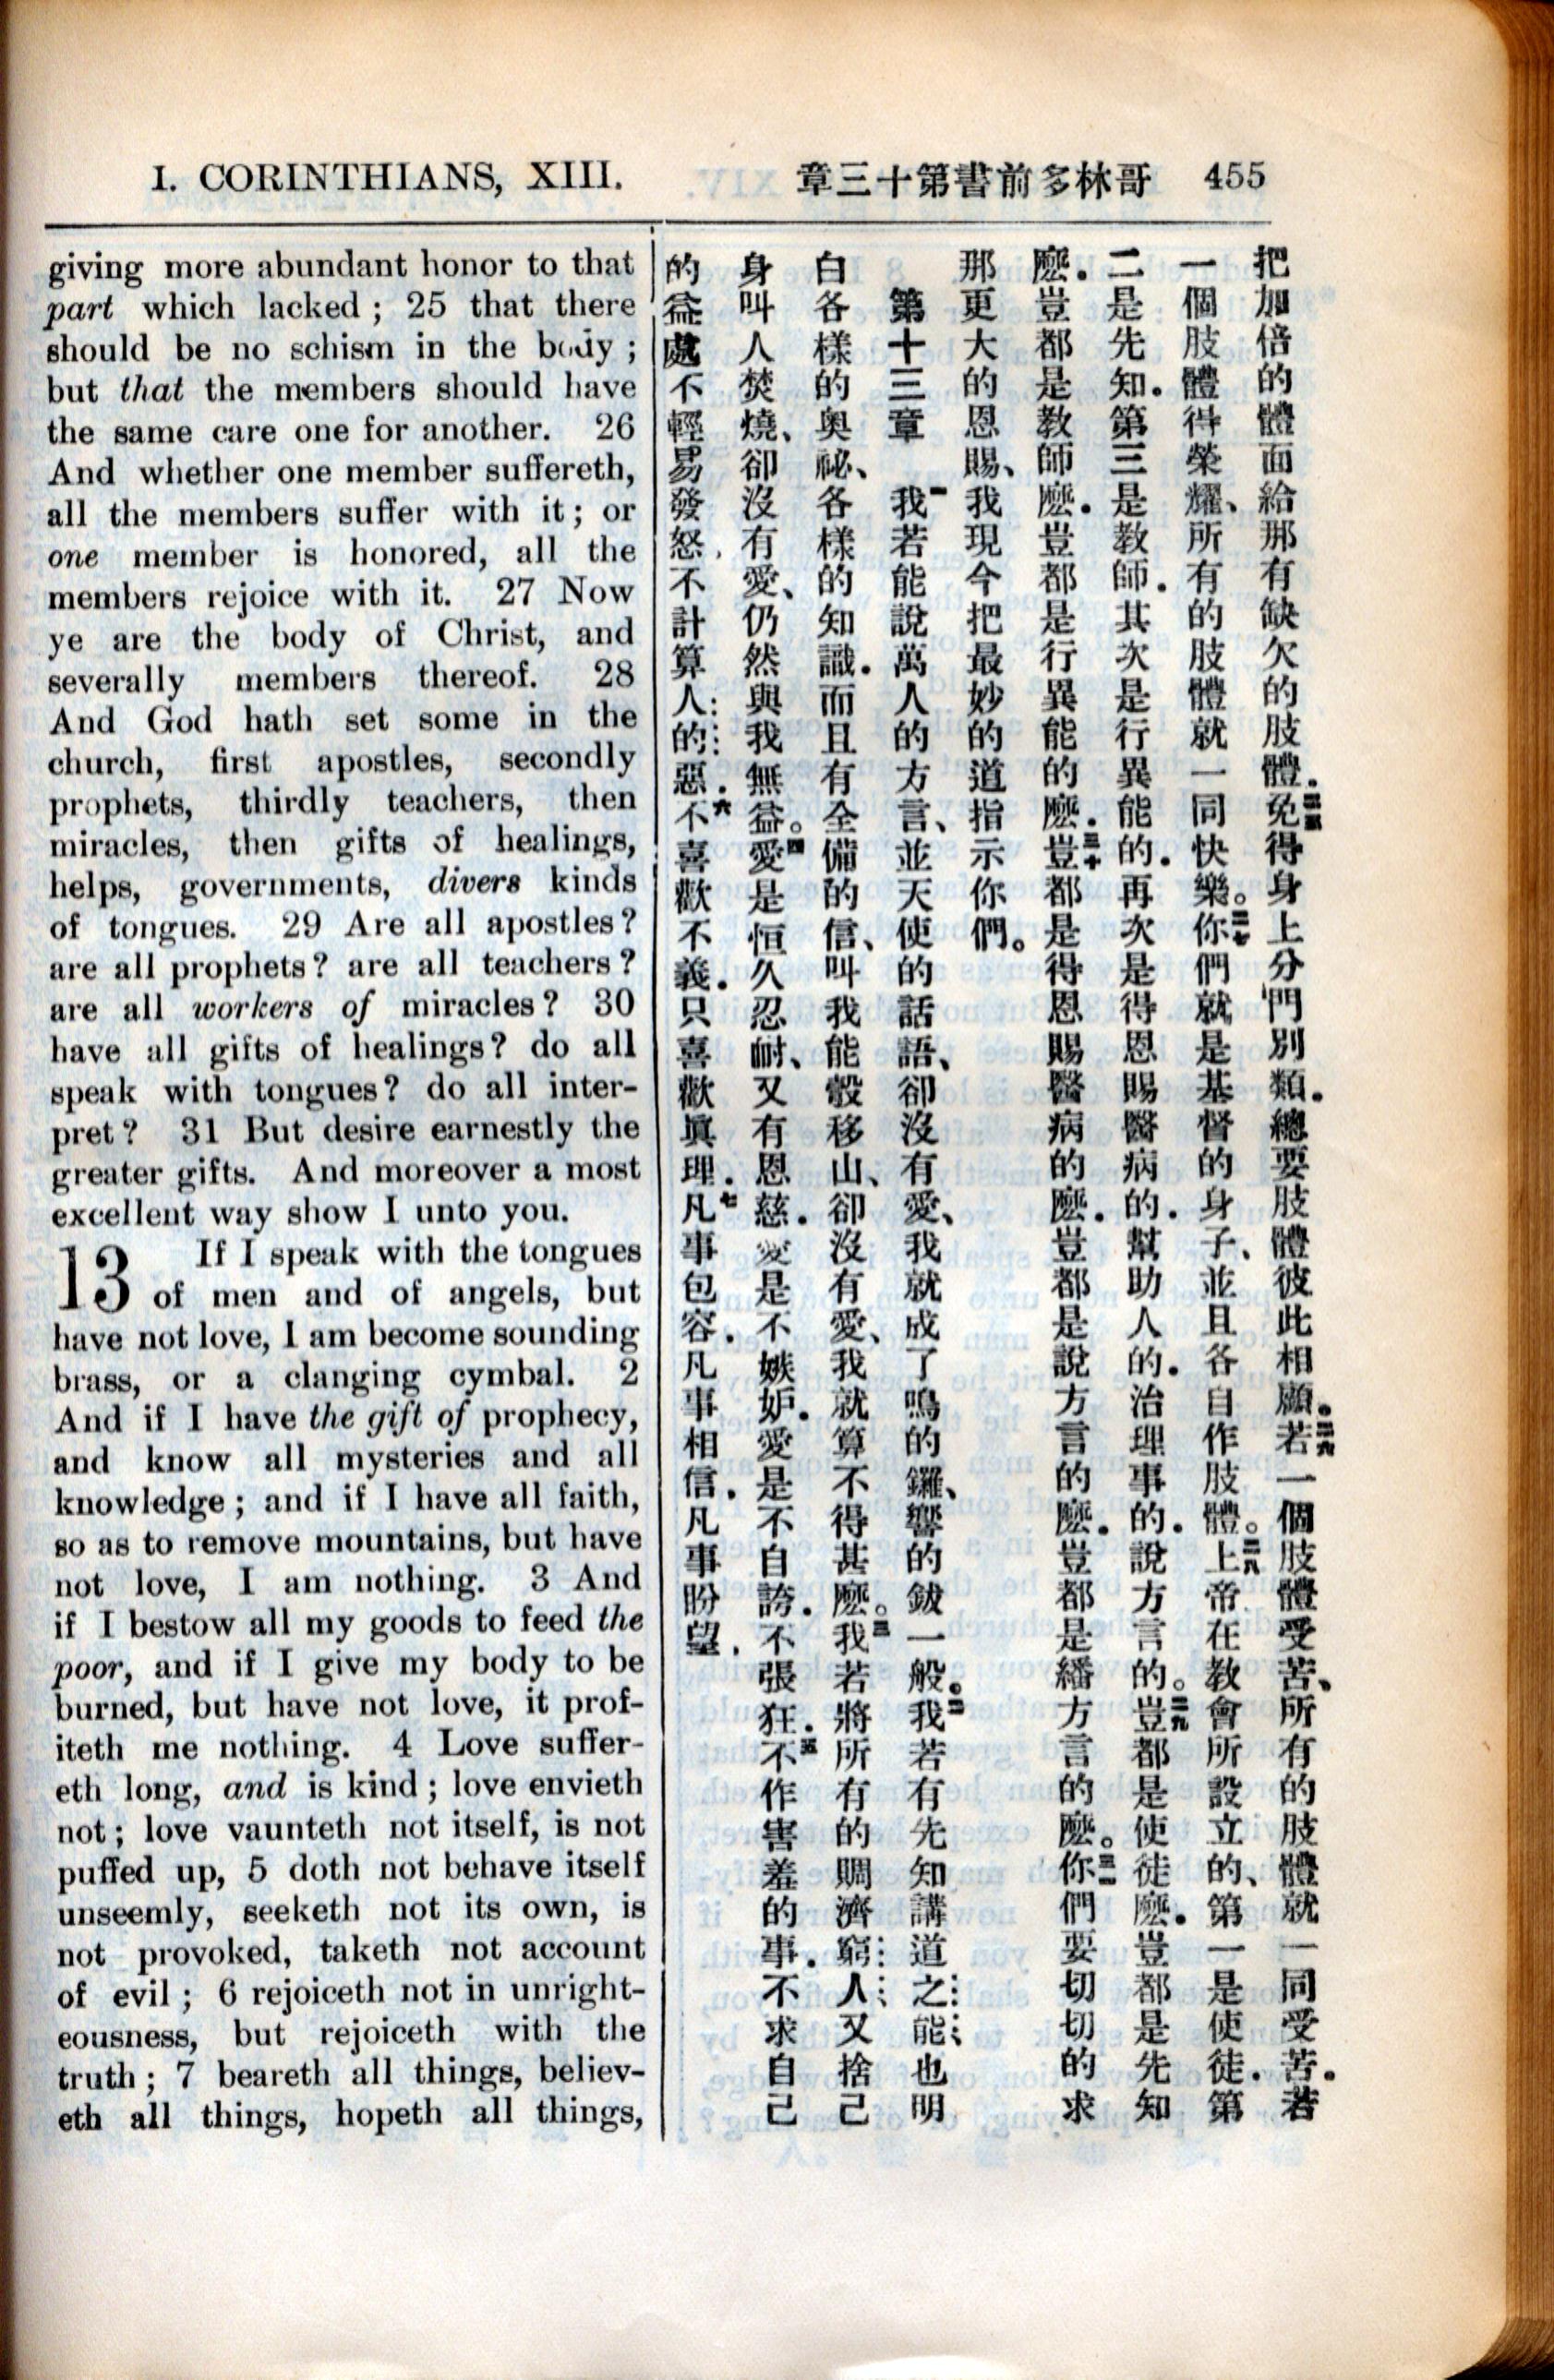 I. CORINTHIANS, XIII.
哥林多前書第十三章 455
giving more abundant honor to that
part which lacked ; 25 that there
should be no schism in the body ;
but that the members should have
the same care one for another. 26
And whether one member suffereth,
all the members suffer with it ; or
one member is honored, all the
members rejoice with it. 27 Now
ye are the body of Christ, and
severally members thereof. 28
And God hath set some in the
church, first apostles, secondly
prophets, thirdly teachers, then
miracles, then gifts of healings,
helps, governments, divers kinds
of tongues. 29 Are all apostles ?
are all prophets ? are all teachers ?
are all workers of miracles ? 30
have all gifts of healings ? do all
speak with tongues ? do all inter-
pret ? 31 But desire earnestly the
greater gifts. And moreover a most
excellent way show I unto you.
13 If I speak with the tongues
of men and of angels, but
have not love, I am become sounding
brass, or a clanging cymbal. 2
And if I have the gift of prophecy,
and know all mysteries and all
knowledge ; and if I have all faith,
so as to remove mountains, but have
not love, I am nothing. 3 And
if I bestow all my goods to feed the
poor, and if I give my body to be
burned, but have not love, it prof-
iteth me nothing. 4 Love suffer-
eth long, and is kind ; love envieth
not ; love vaunteth not itself, is not
puffed up, 5 doth not behave itself
unseemly, seeketh not its own, is
not provoked, taketh not account
of evil ; 6 rejoiceth not in unright-
eousness, but rejoiceth with the
truth ; 7 beareth all things, believ-
eth all things, hopeth all things,
把加倍的體面給那有缺欠的肢體.二五免得身上分門別類.總要肢體彼此相顧。二六若一個肢體受苦、所有的肢體就一同受苦.若
一個肢體得榮耀、所有的肢體就一同快樂。二七你們就是基督的身子、並且各自作肢體。二八上帝在教會所設立的、第一是使徒.第
二是先知.第三是教師.其次是行異能的.再次是得恩賜醫病的.幫助人的.治理事的.說方言的。二九豈都是使徒麼.豈都是先知
麼.豈都是教師麼.豈都是行異能的麼.三十豈都是得恩賜醫病的麼.豈都是說方言的麼.豈都是繙方言的麼。三一你們要切切的求
那更大的恩賜、我現今把最妙的道指示你們。
第十三章 一我若能說萬人的方言、並天使的話語、卻沒有愛、我就成了鳴的鑼、響的鈸一般。二我若有先知講道之能也明
白各樣的奧祕、各樣的知識.而且有全備的信、叫我能彀移山、卻沒有愛、我就算不得甚麼。三我若將所有的賙濟窮人又捨己
身叫人焚燒、卻沒有愛、仍然與我無益。四愛是恒久忍耐、又有恩慈.愛是不嫉妒.愛是不自誇.不張狂.五不作害羞的事.不求自己
的益處不輕易發怒.不計算人的惡.六不喜歡不義.只喜歡眞理.七凡事包容.凡事相信.凡事盼望.